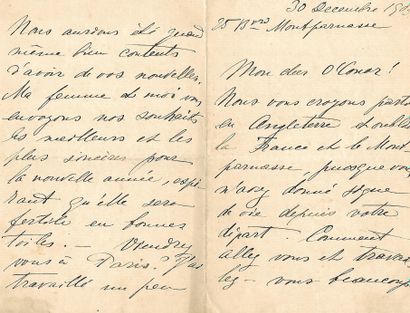 30 Decembre 19
25 Bvd Montparnasse
Mon cher O'Conor!
Nous vous croyons parti
en Angleterre et oublié
la France et le Mont
parnasse, puisque vous
n'avez donné signe
de vie depuis votre
départ. Comment
allez vous et travail
lez-vous beaucoup
Nous aurions été quand
même bien contents
d'avoir de vos nouvelles.
Ma femme et moi vous
envoyons nos souhaits
les meilleurs et les
plus sincères pour
la nouvelle année, espé
rant qu'elle sera
fertile en bonnes
toiles. — Viendrez
vous à Paris? J'ai
travaillé un peu